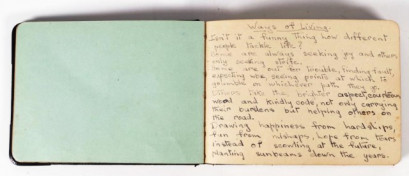 Ways of Living.
Isn't it a funny thing how different
people tackle life?
Some are always seeking joy and others
only seeking strife.
Some are out for trouble, finding fault,
expecting woe, seeing points at which to
grumble on whichever path they go.
Others see the brighter aspect, courteous
word and kindly code, not only carrying
their burdens but helping others on
the road.
Drawing happiness from hardships,
fun from mishaps, hope from tears
instead of scowling at the future,
planting sunbeams down the years.